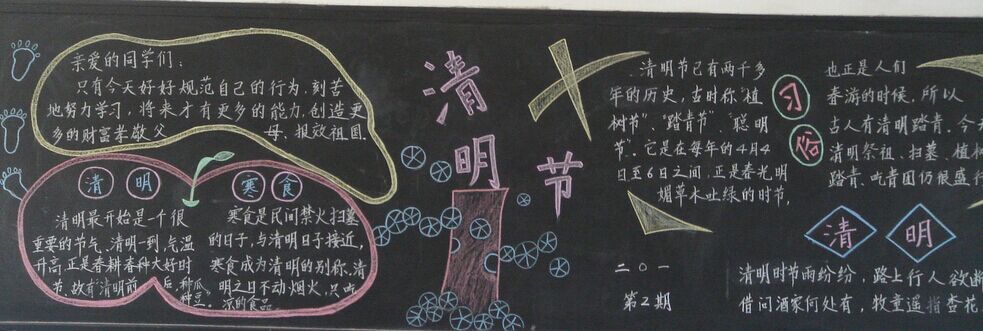 亲爱的同学们:
只有今天好好规范自己的行为,刻苦
地努力学习,将来才有更多的能力,创造更
多的财富孝敬父 母、报效祖国.
清明
清明最开始是一个很
重要的节气、清明一到,气温
升高,正是春耕春种大好时
节,故有"清明前 后,种瓜
种豆。
寒食
寒食是民间禁火扫墓
的日子,与清明日子接近,
寒食成为清明的别称,清
明之日不动烟火,只吃
凉的食品
清明节
清明节已有两千多
年的历史,古时称"植
树节"、"踏青节"、"聪明
节"。它是在每年的4月4
日至6日之间,正是春光明
媚草木吐绿的时节,
习俗
也正是人们
春游的时候,所以
古人有清明踏青。今天
清明祭祖、扫墓、植树
踏青、吃青团仍很盛行
二〇一
第2期
清明
清明时节雨纷纷,路上行人欲断
借问酒家何处有,牧童遥指杏花